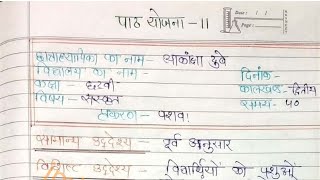 पाठ योजना - 11
Date : / /
Page :
छात्राध्यापिका का नाम - आकांक्षा दुबे
विद्यालय का नाम - दिनांक -
कक्षा - छटवी कालखण्ड - द्वितीय
विषय - संस्कृत समय - ५०
प्रकरण - पशवः
सामान्य उद्देश्य - पूर्व अनुसार
विशिष्ट उद्देश्य - विद्यार्थियों को पशुओं